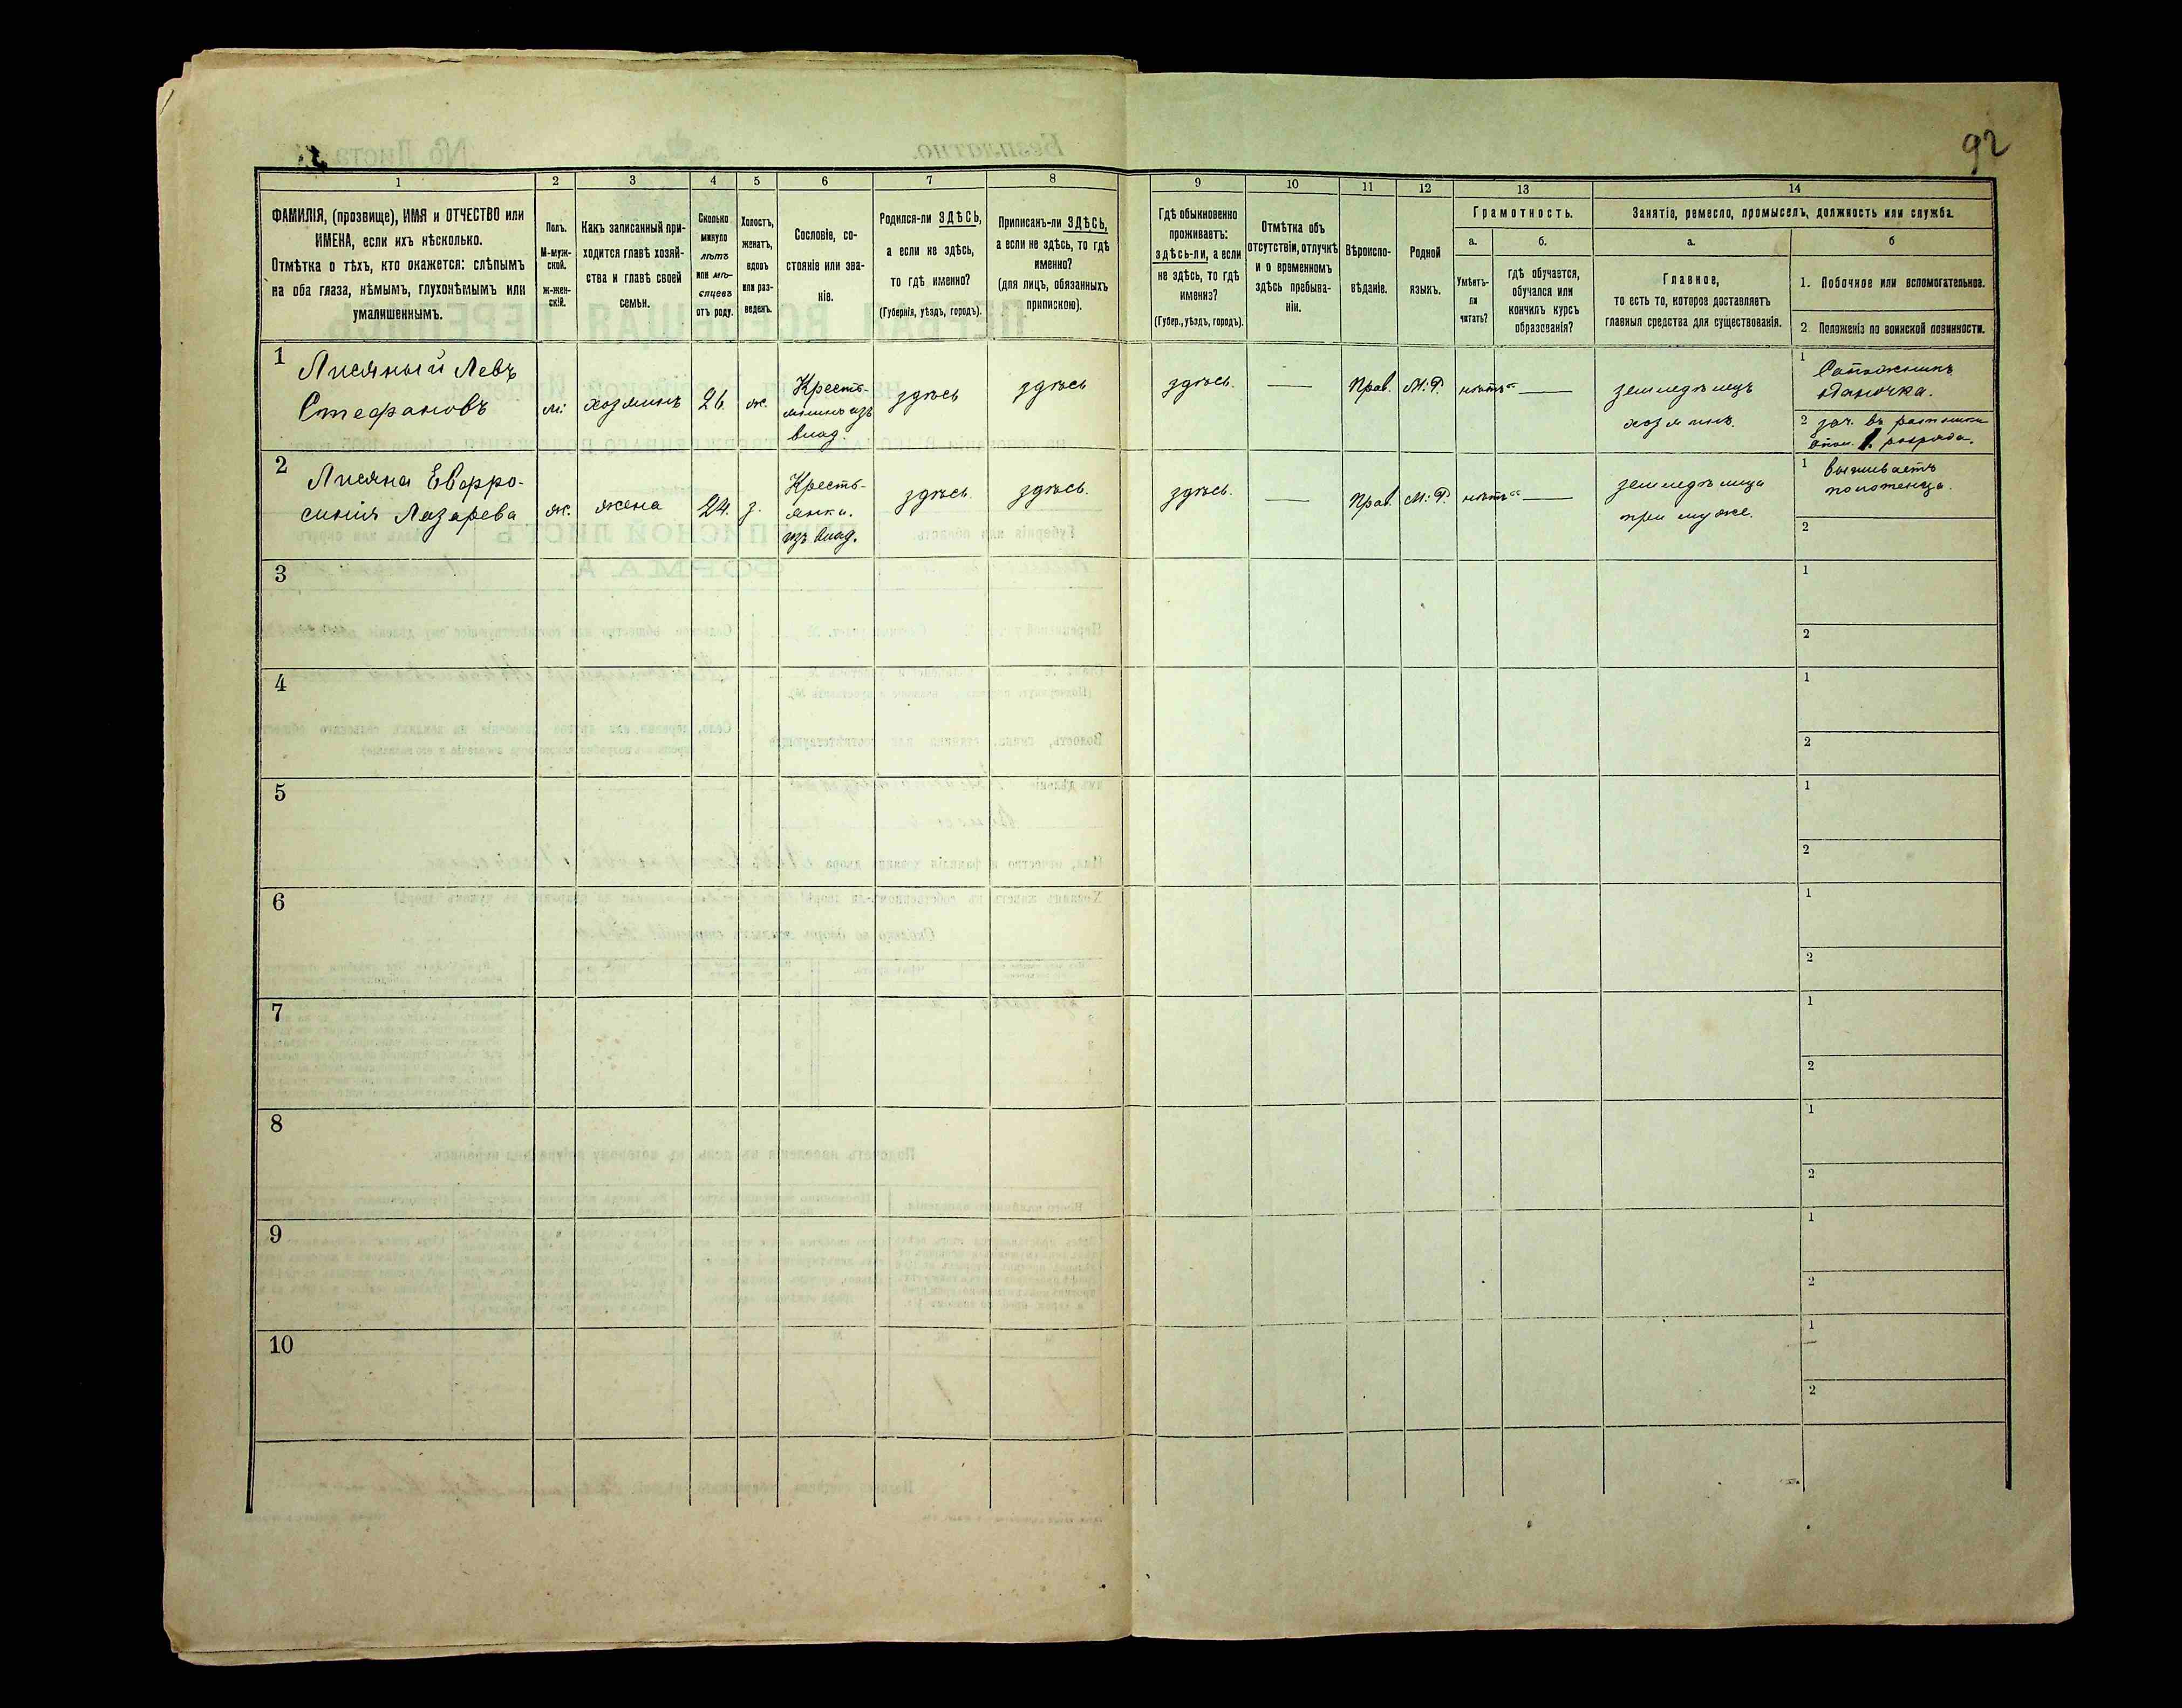 92
1
2
3
4
5
6
7
8
9
10
11
12
13
14
ФАМИЛІЯ, (прозвище), ИМЯ и ОТЧЕСТВО или
ИМЕНА, если ихъ нѣсколько.
Отмѣтка о тѣхъ, кто окажется: слѣпымъ
на оба глаза, нѣмымъ, глухонѣмымъ или
умалишеннымъ.
Полъ.
М-муж-
ской.
ж-жен-
скій.
Какъ записанный при-
ходится главѣ хозяй-
ства и главѣ своей
семьи.
Сколько
минуло
лѣтъ
или мѣ-
сяцевъ
отъ роду.
Холостъ,
женатъ,
вдовъ
или раз-
веденъ.
Сословіе, со-
стояніе или зва-
ніе.
Родился-ли ЗДѢСЬ,
а если не здѣсь,
то гдѣ именно?
(Губернія, уѣздъ, городъ).
Приписанъ-ли ЗДѢСЬ,
а если не здѣсь, то гдѣ
именно?
(для лицъ, обязанныхъ
припискою).
Гдѣ обыкновенно
проживаетъ:
здѣсь-ли, а если
не здѣсь, то гдѣ
именно?
(Губер., уѣздъ, городъ).
Отмѣтка объ
отсутствіи, отлучкѣ
и о временномъ
здѣсь пребыва-
ніи.
Вѣроиспо-
вѣданіе.
Родной
языкъ.
Грамотность.
а.
Умѣетъ-
ли
читать?
б.
гдѣ обучается,
обучался или
кончилъ курсъ
образованія?
Занятіе, ремесло, промыселъ, должность или служба.
а.
Главное,
то есть то, которое доставляетъ
главныя средства для существованія.
б
1. Побочное или вспомогательное.
2. Положеніе по воинской повинности.
1
Лисяный Левъ
Стефановъ
м:
хозяинъ
26.
ж.
Кресть-
янинъ изъ
влад.
здѣсь
здѣсь
здѣсь.
—
Прав.
М.Р.
нѣтъ
—
земледѣлецъ
хозяинъ.
1 Сапожникъ
одиночка.
2 зач. въ ратники
опол. 1. разряда.
2
Лисяна Евфро-
синія Лазарева
ж.
жена
24.
з.
Кресть-
янка.
изъ влад.
здѣсь.
здѣсь.
здѣсь.
—
Прав.
М.Р.
нѣтъ
—
земледѣлица
при мужѣ.
1 вышиваетъ
полотенца.
2
3
1
2
4
1
2
5
1
2
6
1
2
7
1
2
8
1
2
9
1
2
10
1
2